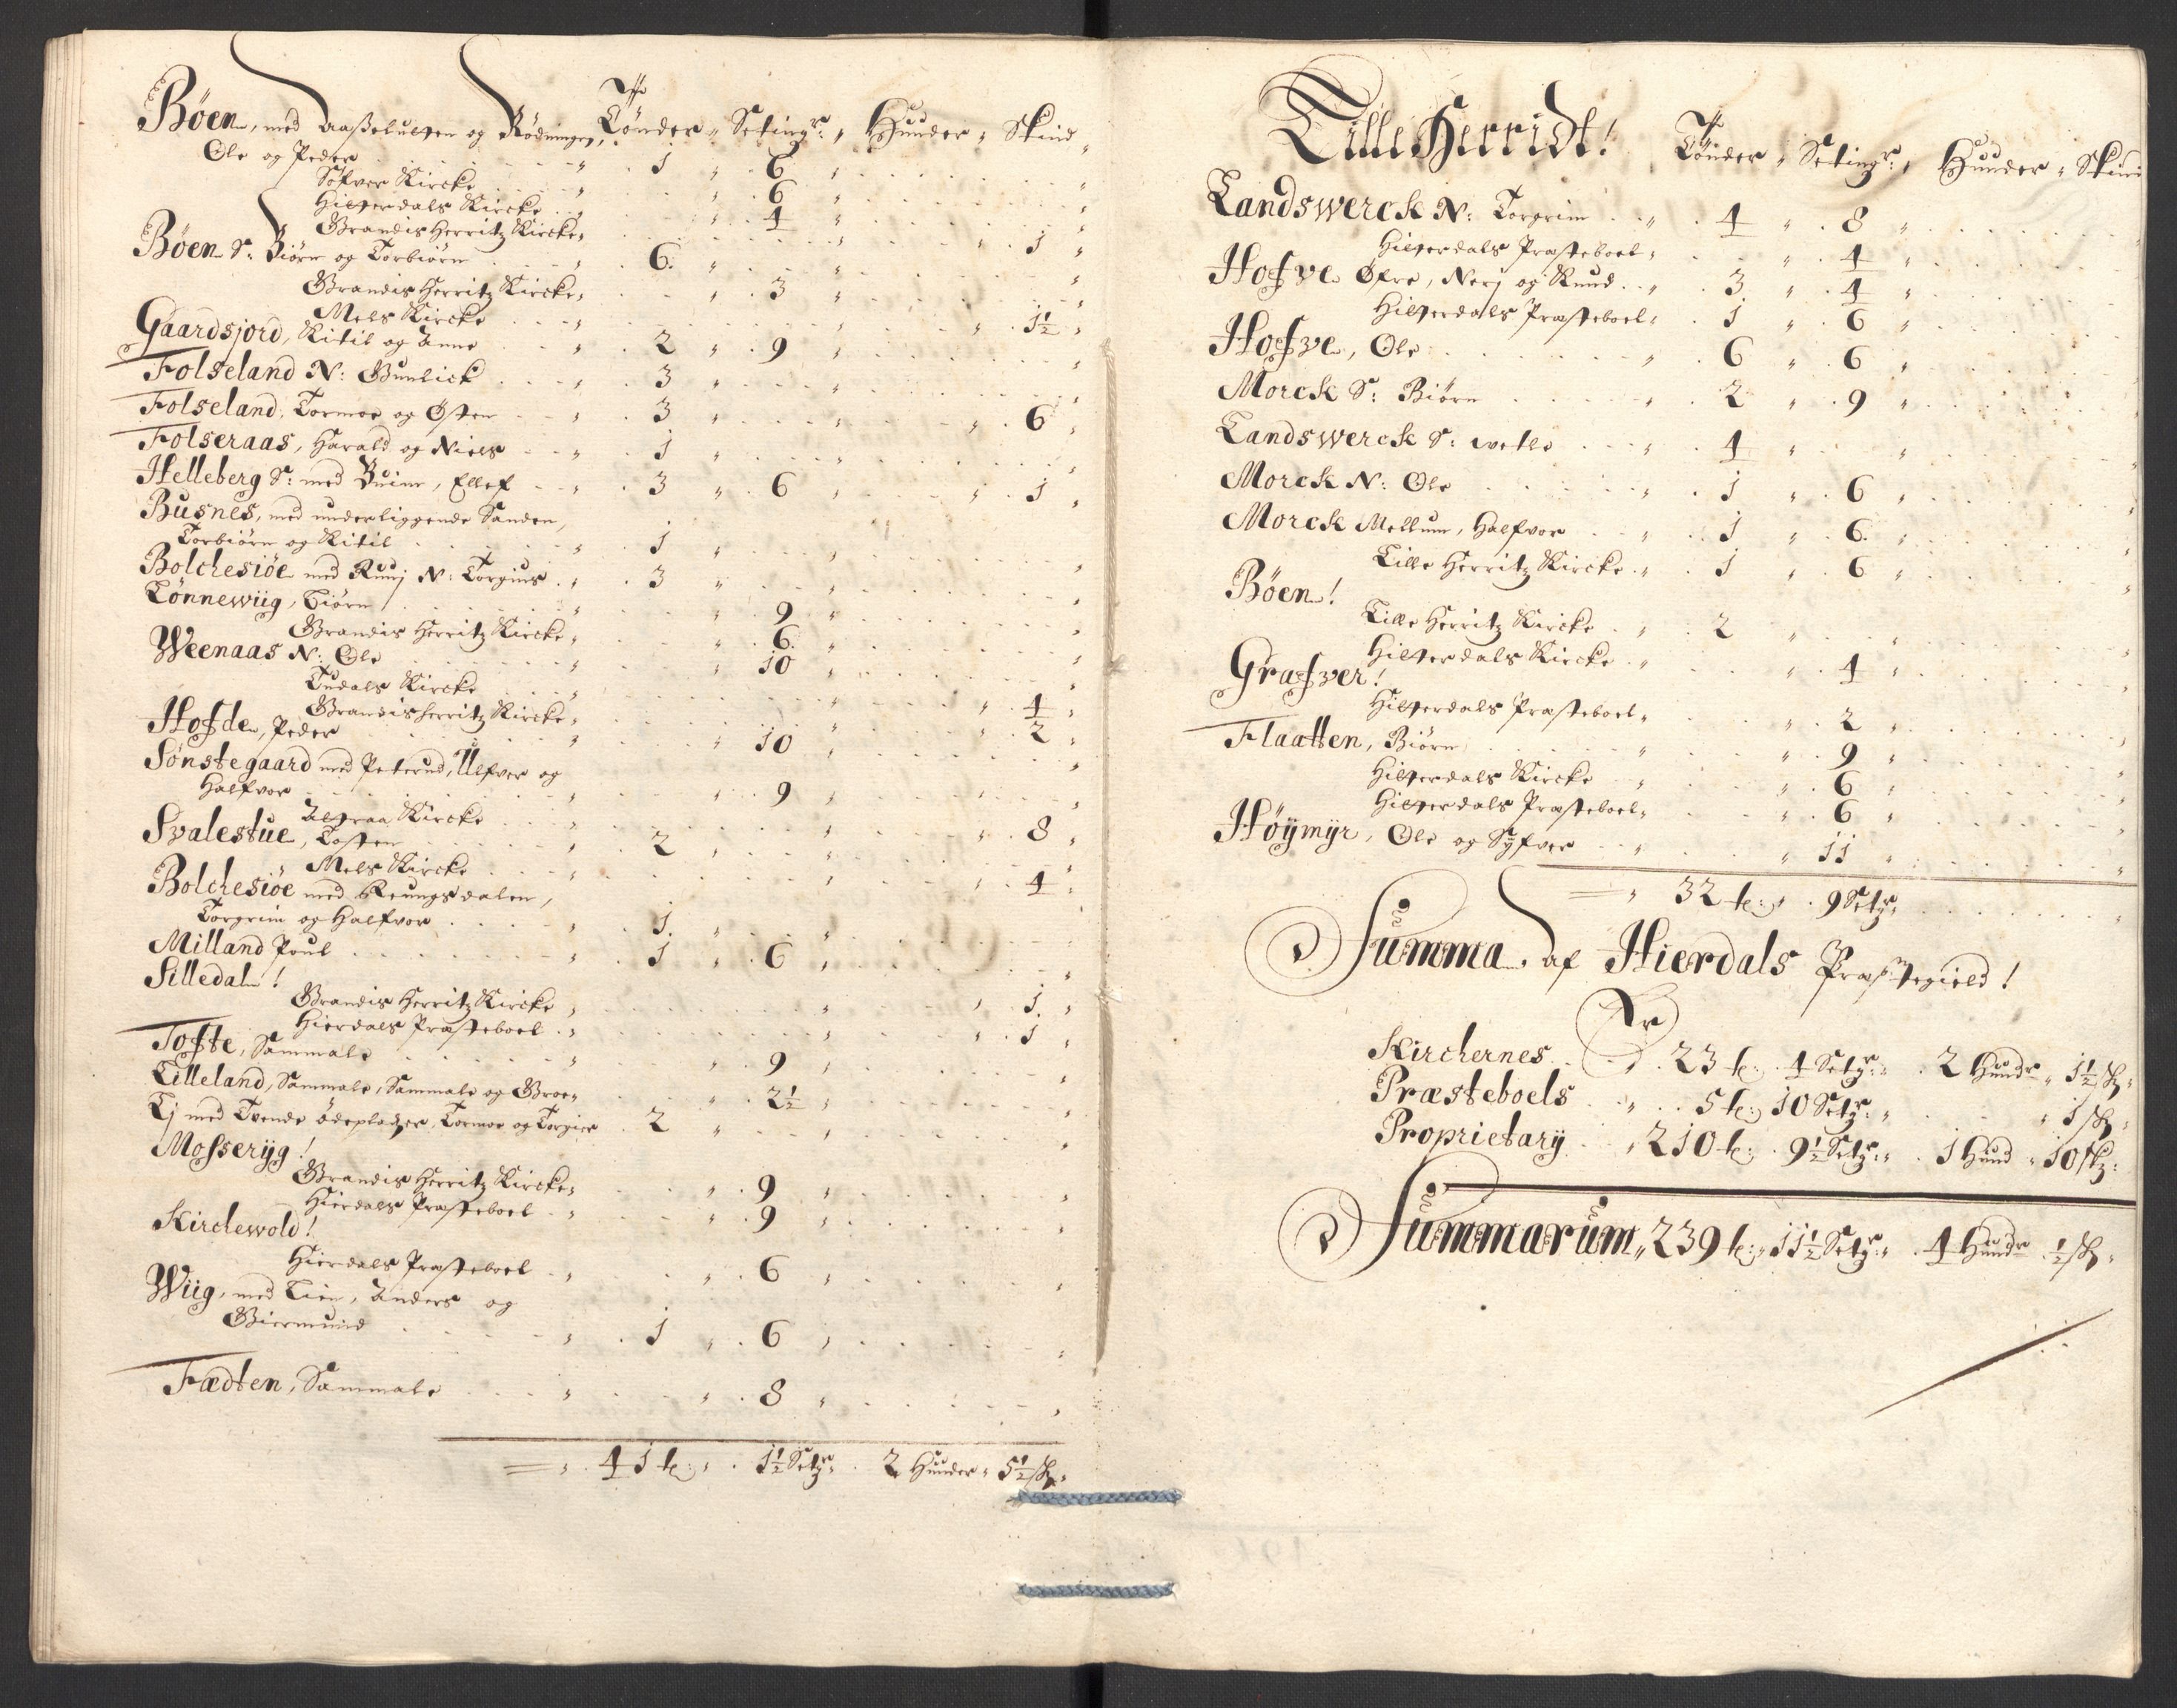 Tønder „ Setingr: „ Huuder „ Skind
Böen, med og Rödningen,
Ole og Peder „ 1 „ 6 „
Söfver Kircke „ „ 6 „
Hitterdals Kircke „ „ 4 „
Brandis Herritz Kircke „ „ „ 1 „
Böen S: Biörn og Torbiörn „ 6. „ „
Brandis Herritz Kircke „ „ 3 „
Mels Kircke „ „ „ 1½ „
Gaardsjord, Kitil og Anne „ 2 „ 9 „
Folseland N: Gunlick „ 3 „ „
Folseland, Tormoe og Østen „ 3 „ „ 6 „
Folseraas, Harald og Niels „ 1 „
Helleberg S: med Buine, Ellef „ 3 „ 6 „ „ 1 „
Busnes, med underliggende Sanden,
Torbiörn og Kitil „ 1 „ „
Bolchesiöe med Ruuj N: Torgiuls „ 3 „
Tönnewiig, Biörn „ „ 9 „
Brandis Herritz Kircke „ „ 6. „
Weenaas N: Ole „ „ 10 „
Tudals Kircke „ „ „ 4 „
Brandis Herritz Kircke „ „ „ 2 „
Hofde, Peder „ „ 10 „
Sönstegaard med Peterud, Ulfver og
Halfvor „ „ 9 „
Attraa Kircke „ „ „ 8 „
Svalestue, Tosten „ 2 „ „
Mels Kircke „ „ „ 4 „
Bolchesiöe med Reungsdalen,
Torgrim og Halfvor „ 1. „ „
Milland Poul „ 1 „ 6 „
Silledal!
Brandis Herritz Kircke „ „ „ 1. „
Hierdals Præsteboel „ „ „ 1 „
Tofte, Sammale „ „ 9 „
Lilleland, Sammale, Sammale og Groe „ „ 2½ „
Lj med Tvende ödepladzer, Tormoe og Torgier 2 „ „
Mosserÿg!
Brandis Herritz Kircke „ „ 9 „
Hierdals Præsteboel „ „ 9 „
Kirchewold!
Hierdals Præsteboel „ „ 6 „
Wiig, med Lien, Anders og
Giermund „ 1 „ 6 „
Fædten, Sammale „ „ 8 „
= „ 41 t: „ 1½ Setzr: 2 Huuder „ 5½ sk: „
Lille Herridt! Tønder „ Setingr: „ Huuder „ Skind
Landswerck N: Torgrim „ 4 „ 8 „
Hitterdals Præsteboel „ „ 4 „
Hofve Øfre, Nerj og Knud „ 3 „ 4 „
Hitterdals Præsteboel „ 1 „ 6 „
Hofve, Ole „ 6 „ 6 „
Morck S: Biörn „ 2 „ 9 „
Landswerck S: wetle „ 4 „ „
Morck N: Ole „ 1 „ 6 „
Morck Mellum, Halfvor „ 1 „ 6. „
Lille Herritz Kircke „ 1 „ 6 „
Böen!
Lille Herritz Kircke „ 2 „ „
Hitterdals Kircke „ „ 4 „
Grafver!
Hitterdals Præsteboel „ „ 2 „
Flaatten, Biörn „ „ 9 „
Hitterdals Kircke „ „ 6 „
Hitterdals Præsteboel „ „ 6 „
Höÿmÿr, Ole og Syfver „ „ 11 „
= „ 32 t: „ 9 Setzr:
Summa af Hierdals Præstegield!
Er
Kirchernes „ 23 t: 4 Setzr: „ 2 Hundr „ 1½ sk: „
Præsteboels „ 5 t: 10 Setzr: „ „ 1 sk: „
Proprietarÿ „ 210 t: 9½ Setzr: „ 1 Huud „ 10 sk:
Summarum „ 239 t: „ 11½ Setzr: „ 4 Hundr ½ sk: „